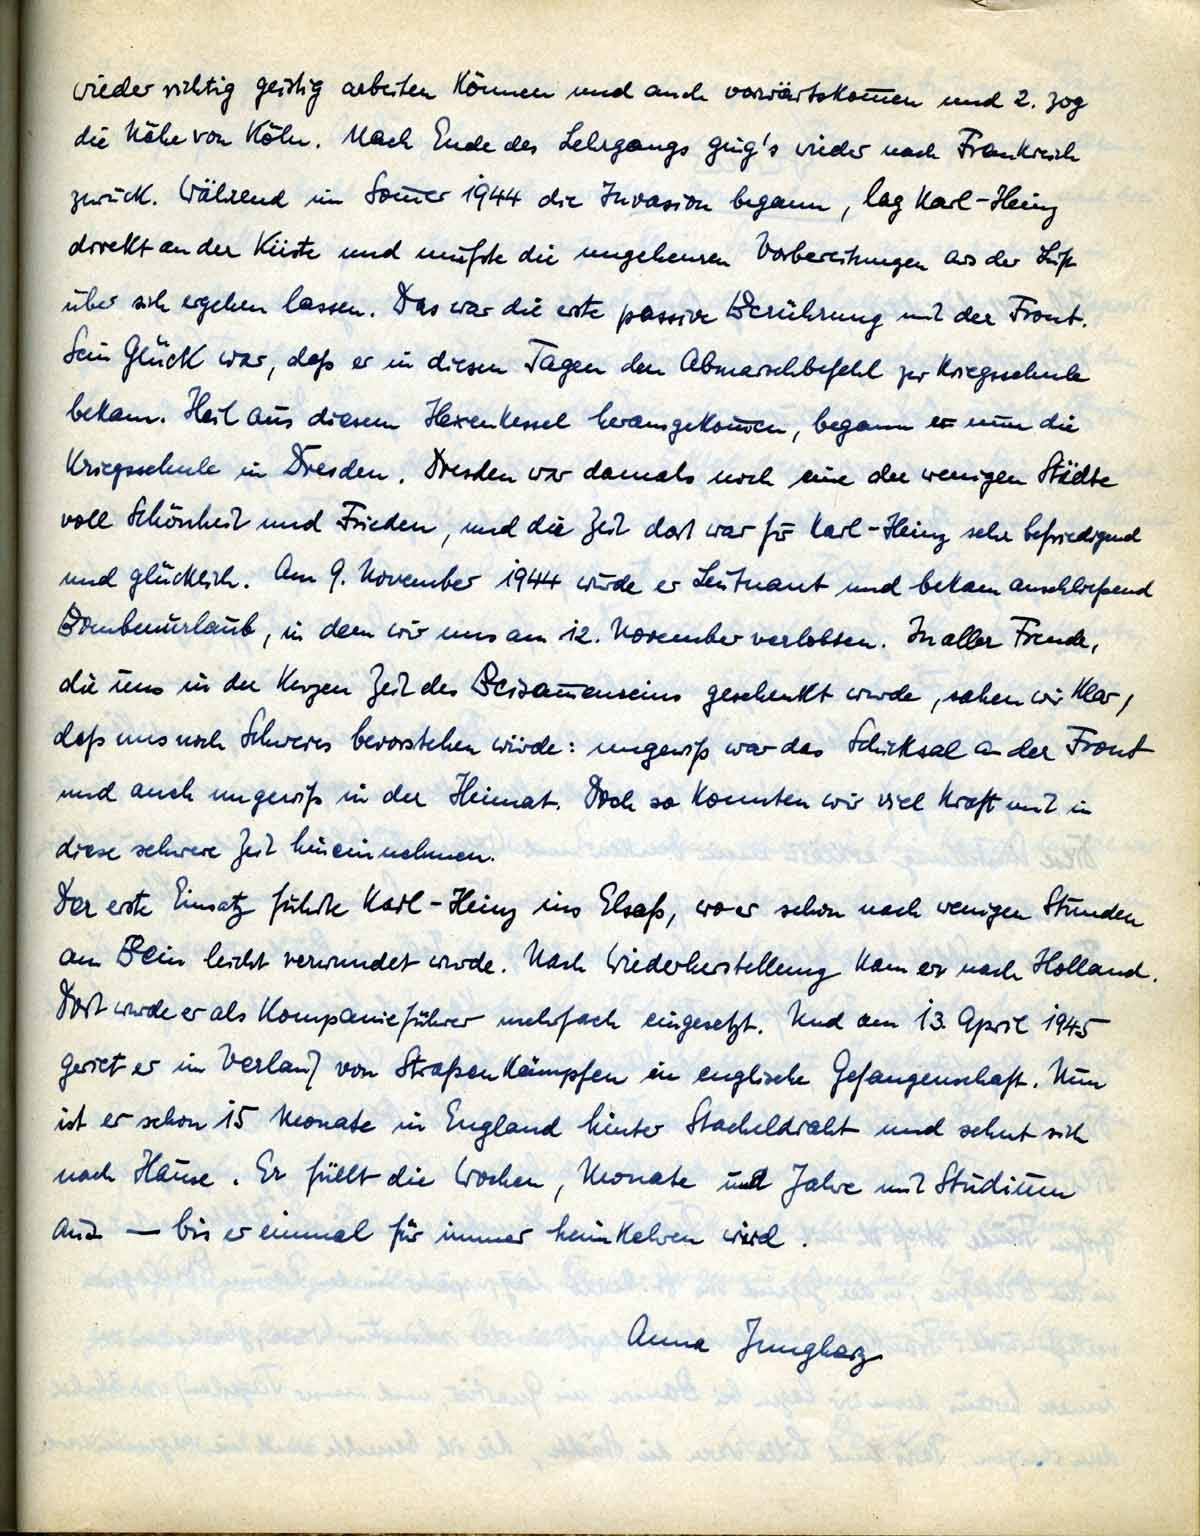 wieder richtig geistig arbeiten können und auch vorwärtskom̅en und 2. zog
die Nähe von Köln. Nach Ende des Lehrgangs ging's wieder nach Frankreich
zurück. Während im Som̅er 1944 die Invasion begann, lag Karl-Heinz
direkt an der Küste und mußte die ungeheuren Vorbereitungen aus der Luft
über sich ergehen lassen. Das war die erste passive Berührung mit der Front.
Sein Glück war, daß er in diesen Tagen den Abmarschbefehl zur Kriegsschule
bekam. Heil aus diesem Hexenkessel herausgekom̅en, begann er nun die
Kriegsschule in Dresden. Dresden war damals noch eine der wenigen Städte
voll Schönheit und Frieden, und die Zeit dort war für Karl-Heinz sehr befriedigend
und glücklich. Am 9. November 1944 wurde er Leutnant und bekam anschließend
Bombenurlaub, in dem wir uns am 12. November verlobten. In aller Freude,
die uns in der kurzen Zeit des Beisam̅enseins geschenkt wurde, sahen wir klar,
daß uns noch Schweres bevorstehen würde: ungewiß war das Schicksal an der Front
und auch ungewiß in der Heimat. Doch so konnten wir viel Kraft mit in
diese schwere Zeit hineinnehmen.
Der erste Einsatz führte Karl-Heinz ins Elsaß, wo er schon nach wenigen Stunden
am Bein leicht verwundet wurde. Nach Wiederherstellung kam er nach Holland.
Dort wurde er als Kompanieführer mehrfach eingesetzt. Und am 13. April 1945
geriet er im Verlauf von Straßenkämpfen in englische Gefangenschaft. Nun
ist er schon 15 Monate in England hinter Stacheldraht und sehnt sich
nach Hause. Er füllt die Wochen, Monate und Jahre mit Studium
aus — bis er einmal für immer heimkehren wird.
Anna